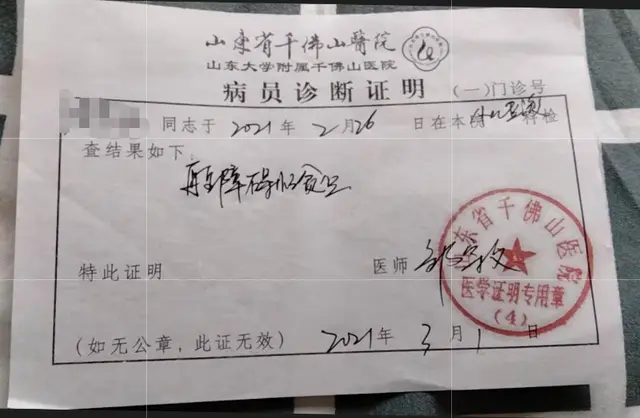 山东省千佛山醫院
山东大学附属千佛山医院
病员诊断证明 (一)门诊号
同志于 2021 年 2 月 26 日在本院 科检
查结果如下:
再生障碍性贫血
特此证明 医师
山东省千佛山医院
医学证明专用章
(4)
(如无公章,此证无效) 2021 年 3 月 1 日